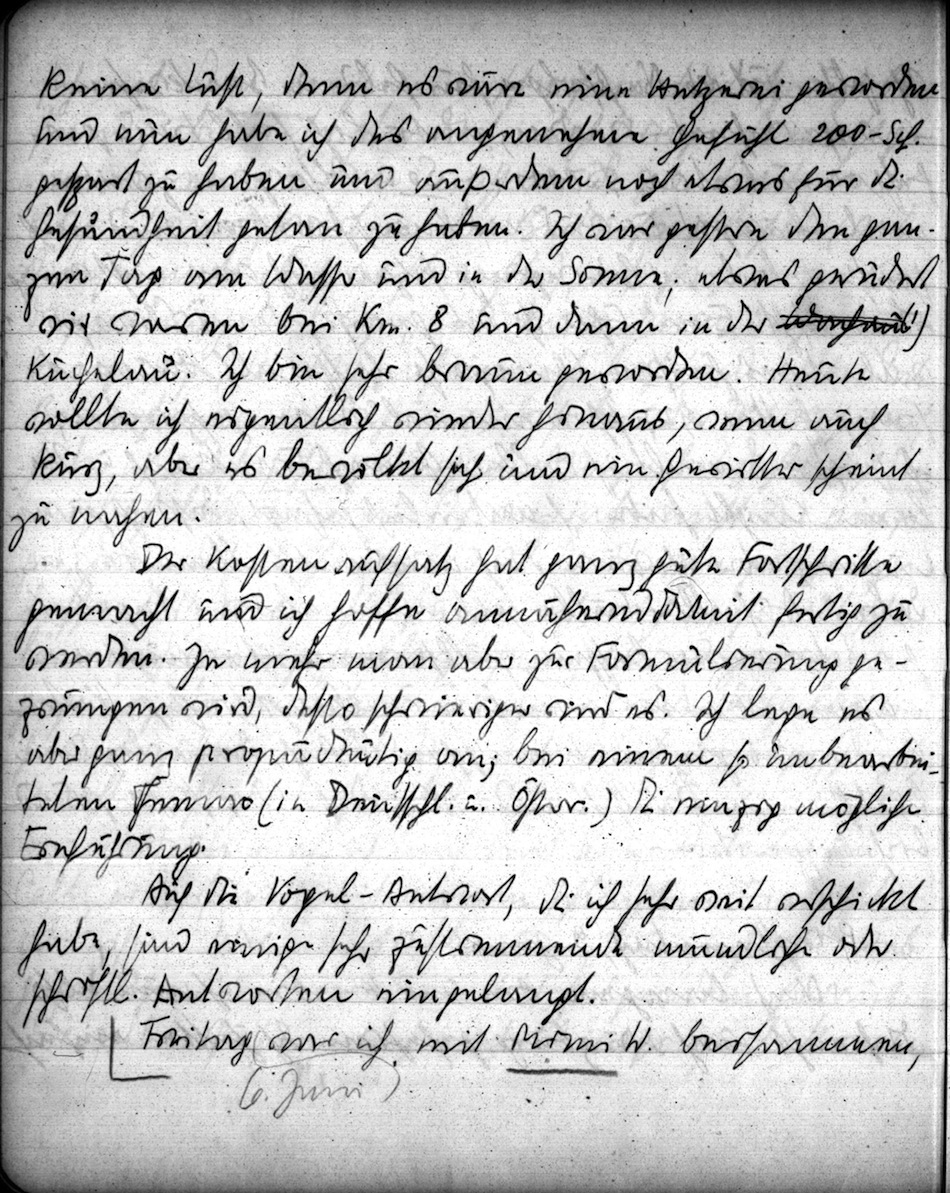 keine Lust, denn es wäre eine Hetzerei geworden
und nun habe ich das angenehme Gefühl 200-Sch.
gespart zu haben und außerdem noch etwas für die
Gesundheit getan zu haben. Ich war gestern den gan-
zen Tag am Wasser und in der Sonne; etwas gerudert
wir waren bei Km. 8 und dann in der Wachau!)
Kuchelau. Ich bin sehr braun geworden. Heute
wollte ich eigentlich wieder hinaus, wenn auch
kurz, aber es bewölkt sich und ein Gewitter scheint
zu nahen.
Der Kostenaufsatz hat ganz gute Fortschritte
gemacht und ich hoffe annähernd damit fertig zu
werden. Je mehr man aber zur Formulierung ge-
zwungen wird, desto schwieriger wird es. Ich lege es
aber ganz propädeutig an; bei einem so unbearbei-
teten Thema (in Deutschl. u. Österr.) die einzig mögliche
Einführung.
Auf die Vogel-Antwort, die ich sehr weit verschickt
habe, sind einige sehr zustimmende mündliche oder
schriftl. Antworten eingelangt.
Freitag war ich mit W. beisammen,
(6. Juni)